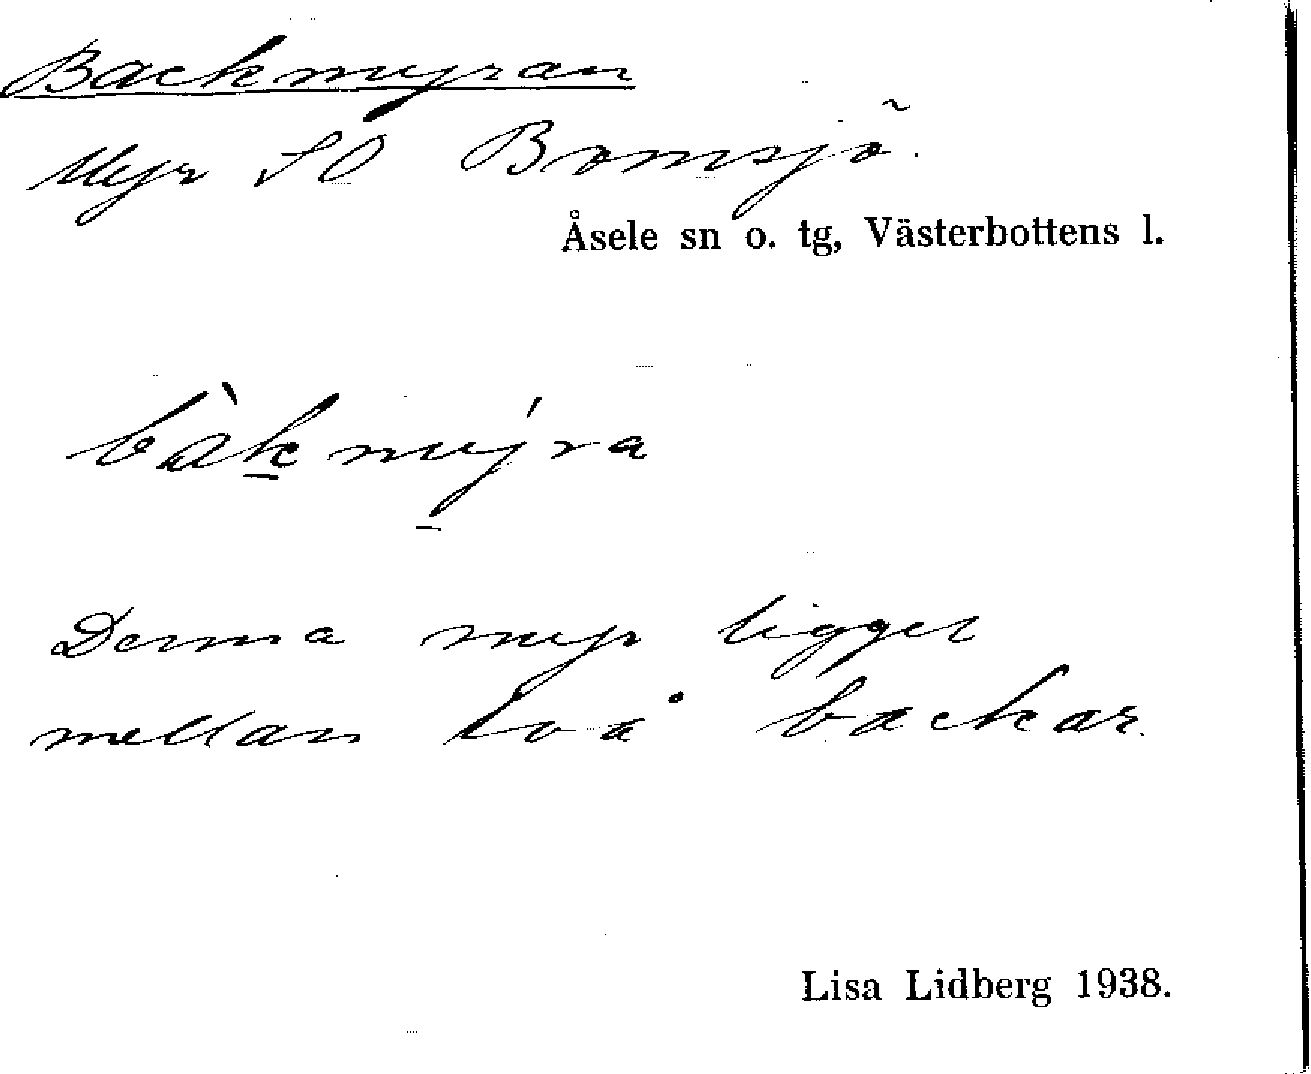 Backmyran
Myr SO Bomsjö.
Åsele sn o. tg, Västerbottens l.
bàkmýra
Denna myr ligger
mellan två backar.
Lisa Lidberg 1938.